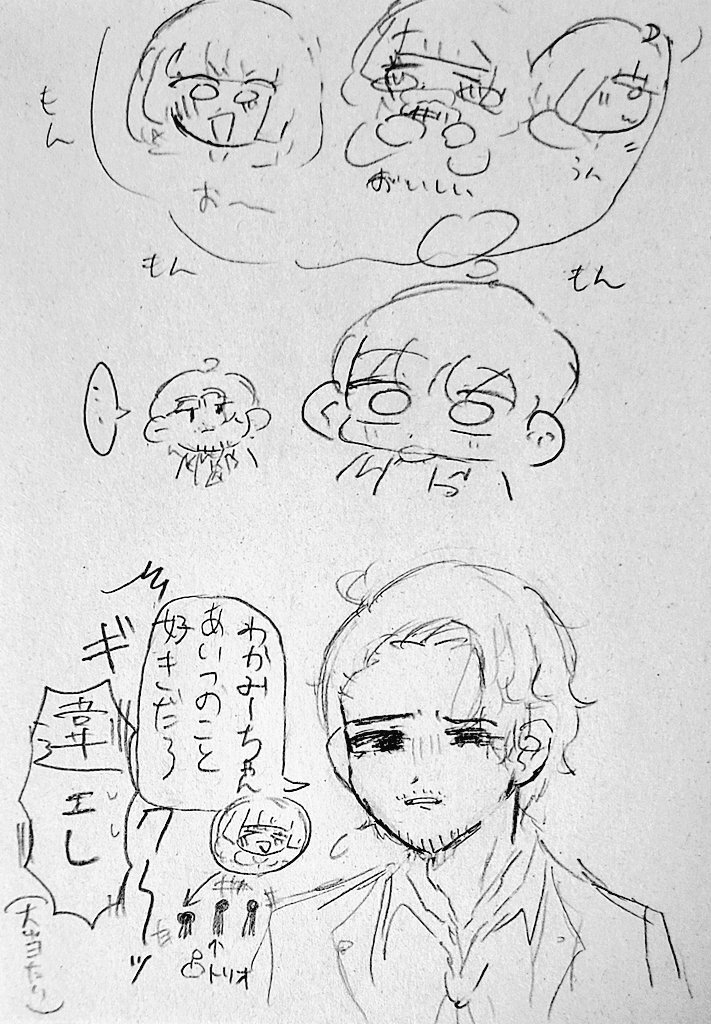 もん
お〜
おいしい
うん
もん
もん
…
わかみーちゃん
あいつのこと
好きだろ
ギ
クーッ
トリオ